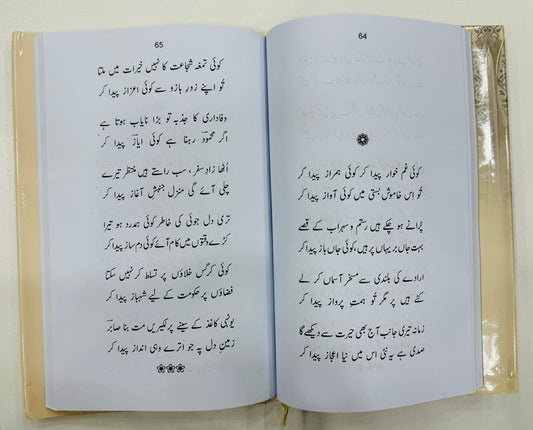 64
کوئی غم خوار پیدا کر کوئی ہمراز پیدا کر
تو اس خاموش بستی میں کوئی آواز پیدا کر
پرانے ہو چکے ہیں رستم و سہراب کے قصے
بہت جاں بر یہاں پر ہیں، کوئی جاں باز پیدا کر
ارادے کی بلندی سے مسخر آسماں کر لے
کٹے ہیں پر مگر تو ہمتِ پرواز پیدا کر
زمانہ تیری جانب آج بھی حیرت سے دیکھے گا
صدی ہے یہ نئی اس میں نیا اعجاز پیدا کر
65
کوئی تمغہ شجاعت کا نہیں خیرات میں ملتا
تُو اپنے زورِ بازو سے کوئی اعزاز پیدا کر
وفاداری کا جذبہ تو بڑا نایاب ہوتا ہے
اگر محمودؔ رہنا ہے کوئی ایازؔ پیدا کر
اُٹھا زادِ سفر، سب راستے ہیں منتظر تیرے
چلی آئے گی منزل جنبش آغاز پیدا کر
تری دل جوئی کی خاطر کوئی ہمدرد ہو تیرا
کڑے وقتوں میں کام آئے کوئی دم ساز پیدا کر
کوئی کرگس خلاؤں پر تسلط کر نہیں سکتا
فضاؤں پر حکومت کے لیے شہباز پیدا کر
یونہی کاغذ کے سینے پر لکیریں مت بنا صابرؔ
زمینِ دل پہ جو اترے وہی انداز پیدا کر